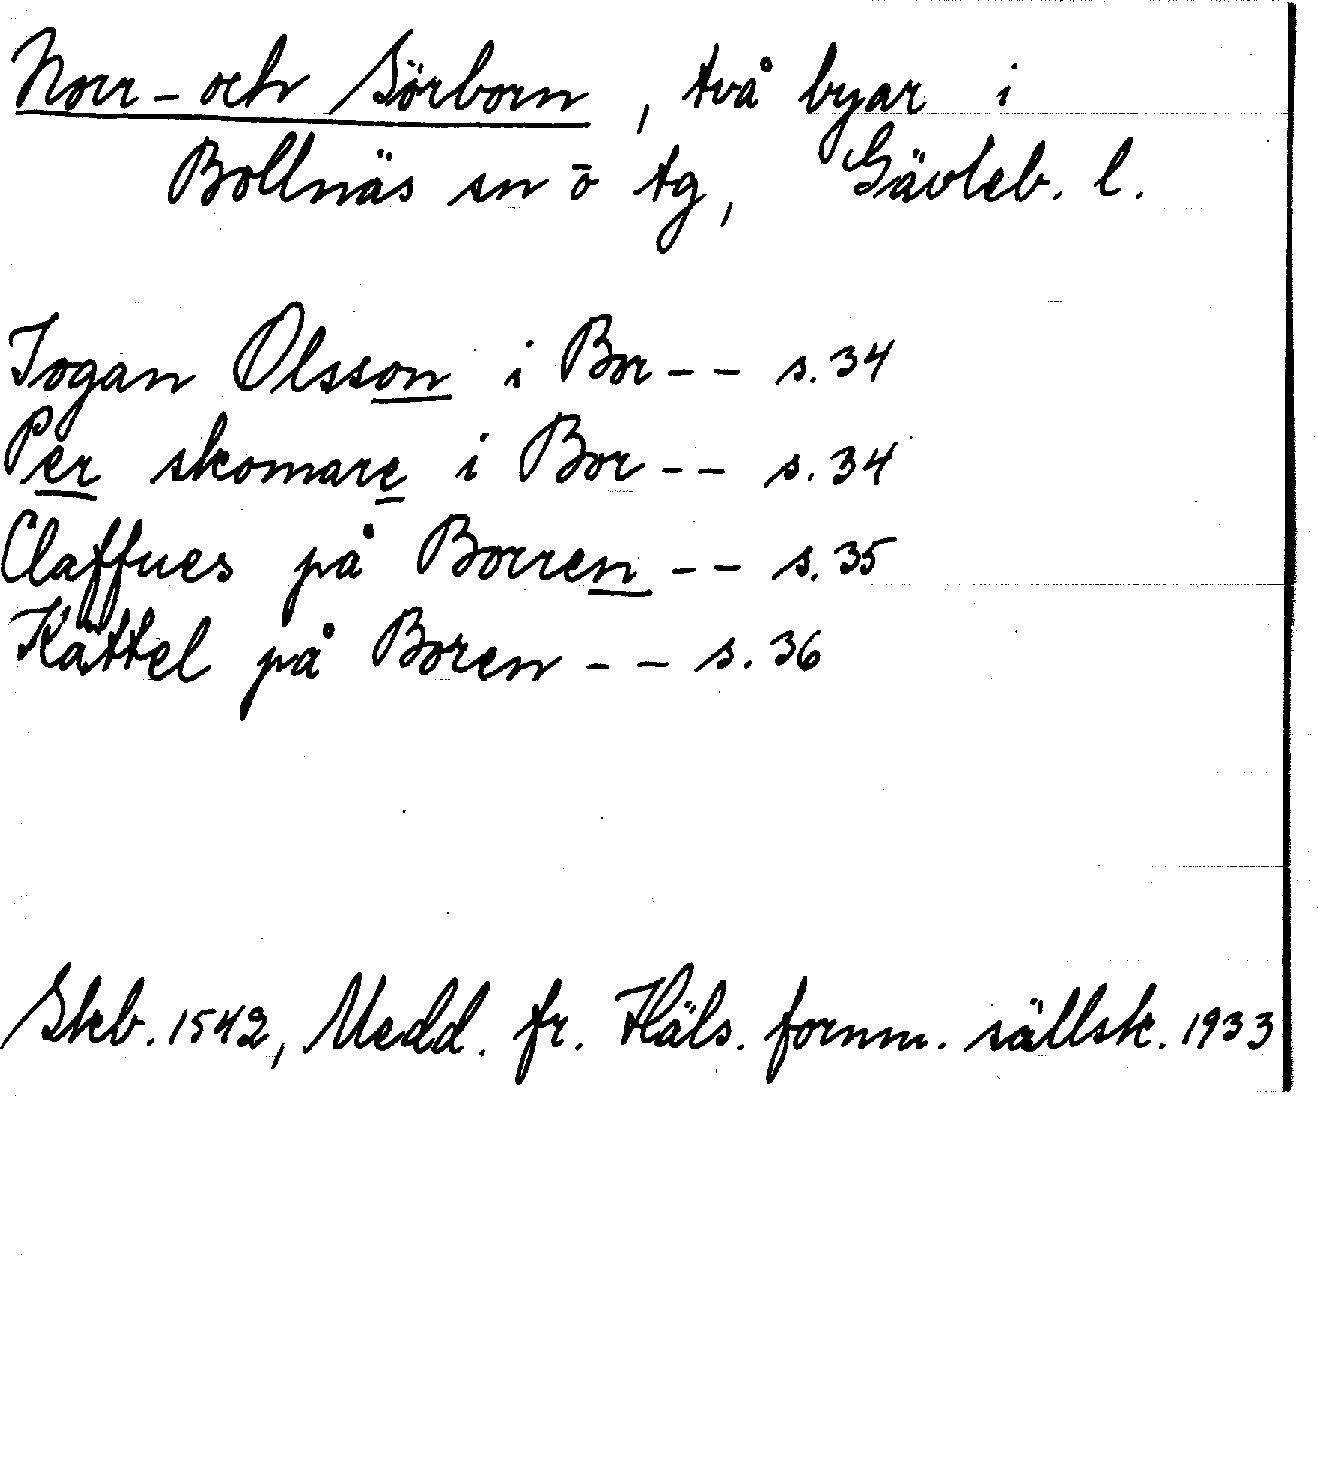 Norr- och Sörborn, två byar i
Bollnäs sn o tg, Gävleb. l.
Jogan Olsson i Bor - - s. 34
Per skomare i Bor - - s. 34
Claffues på Borren - - s. 35
Kättel på Boren - - s. 36
Skb. 1542, Medd. fr. Häls. fornm. sällsk. 1933